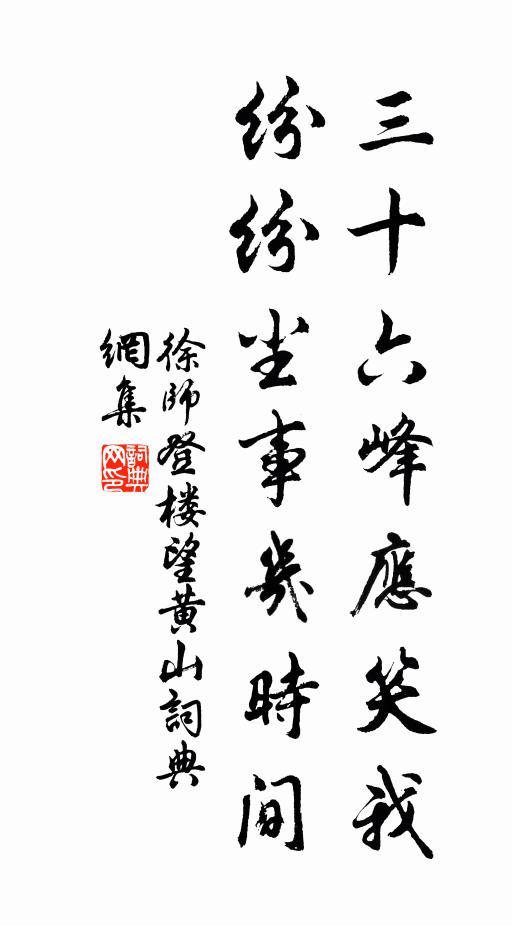 三十六峰應笑我
紛紛尘事幾時間
徐師登楼望黄山詞典
網集
詞典
网印